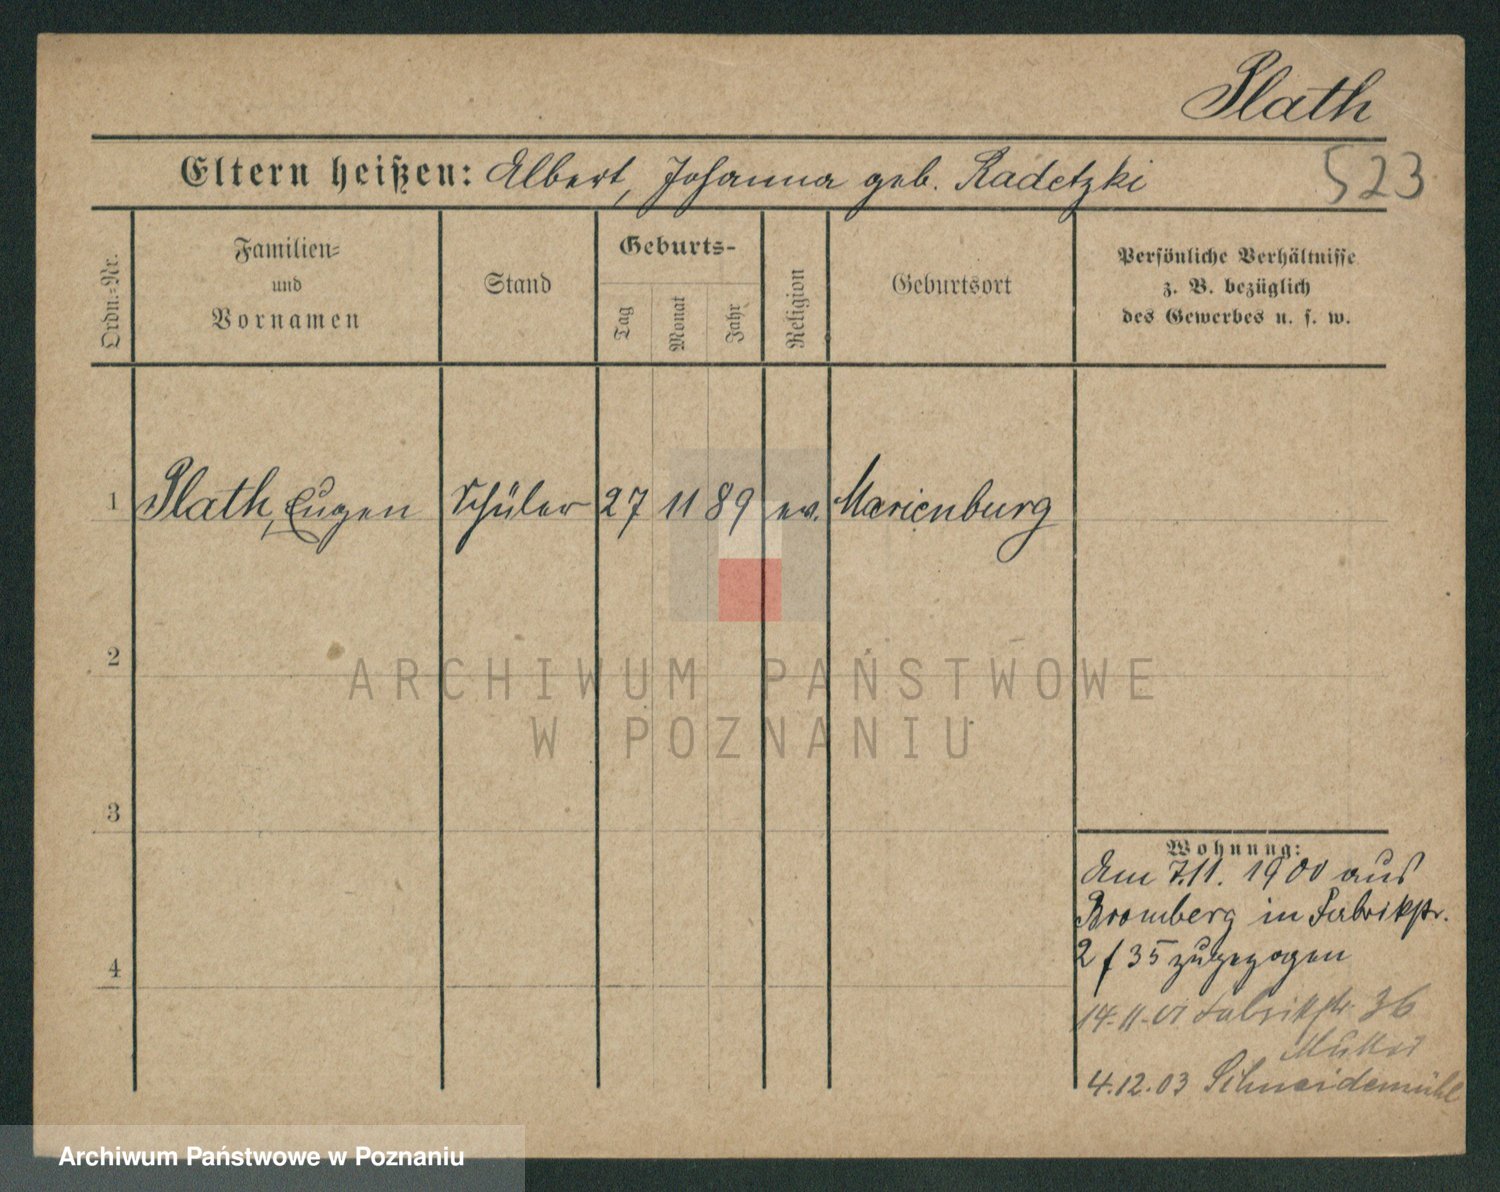 Plath
Eltern heißen: Albert, Johanna geb. Radetzki
523
Ordn.-Nr.
Familien-
und
Vornamen
Stand
Geburts-
Tag
Monat
Jahr
Religion
Geburtsort
Persönliche Verhältnisse
z. B. bezüglich
des Gewerbes u. s. w.
1 Plath, Eugen Schüler 27 11 89 ev. Marienburg
2
ARCHIWUM PAŃSTWOWE
W POZNANIU
3
Wohnung:
Am 7.11. 1900 aus
Bromberg in Fabrikstr.
2 f 35 zugezogen
4
14-11-01 Fabrikstr. 36
4.12.03 Schneidemühl
Archiwum Państwowe w Poznaniu